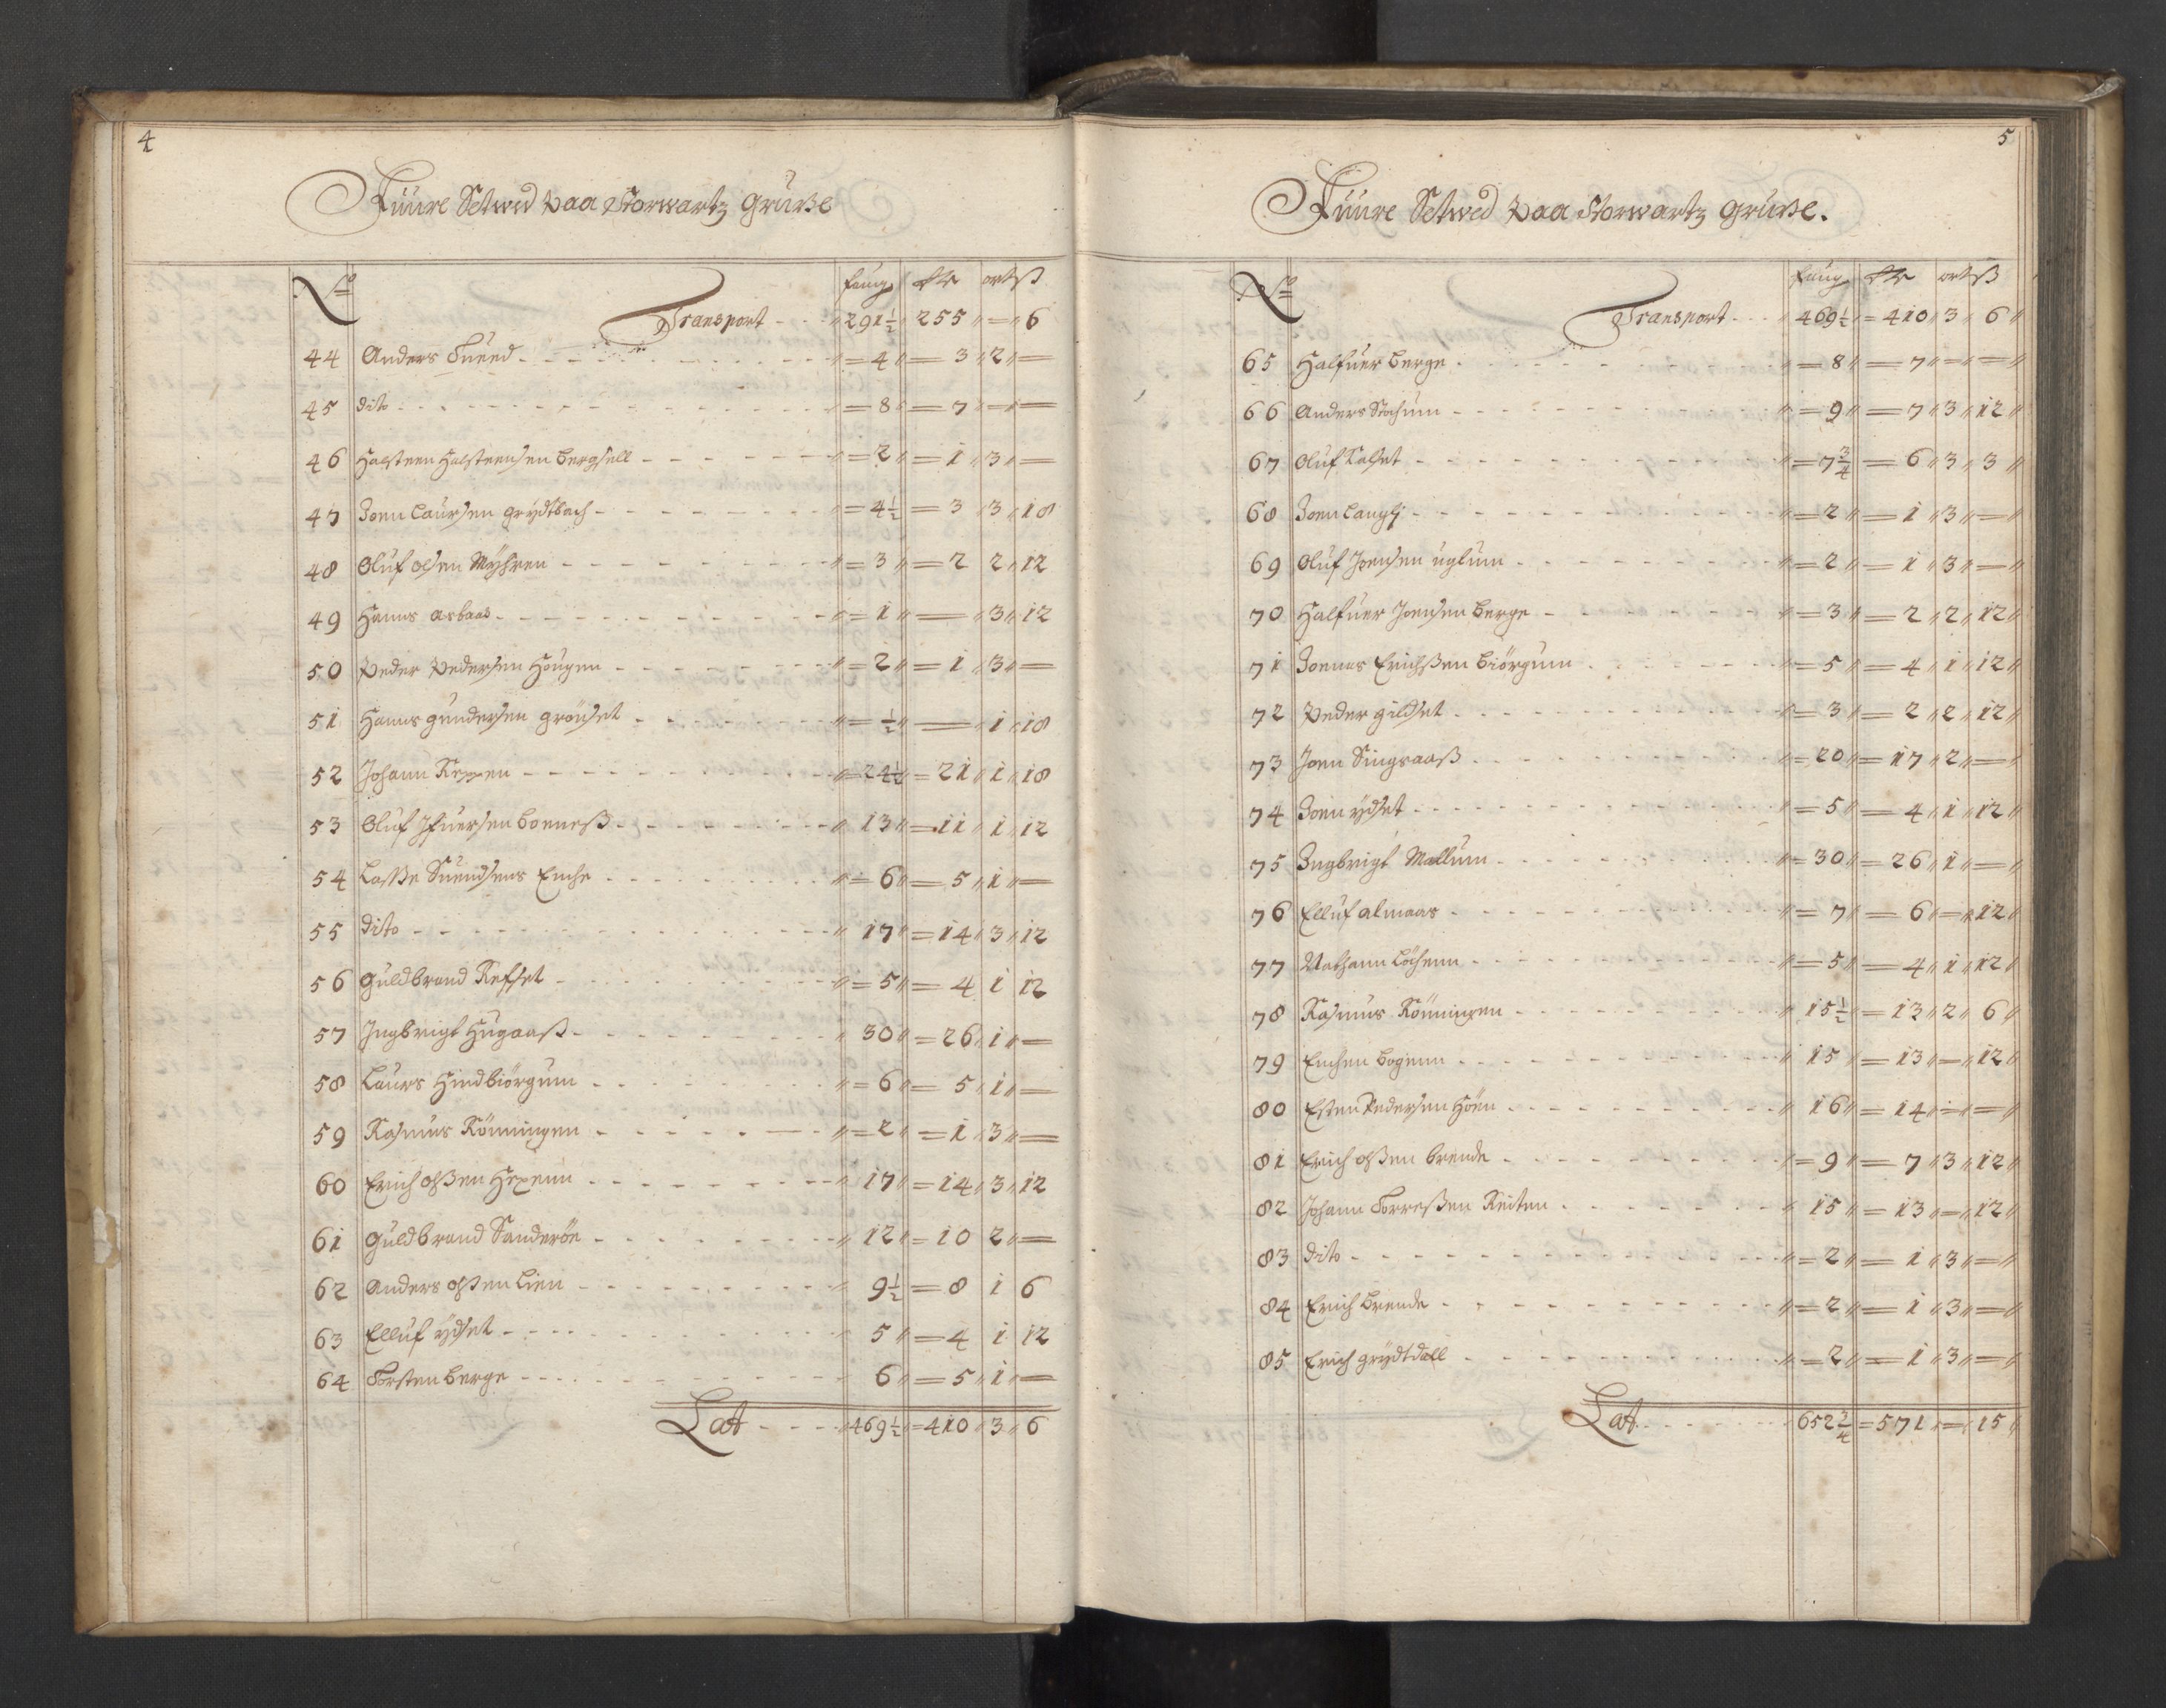 4
Fuure Setwed paa Storwartz Grube
No faug Rdr ort ß
Transport - - " 291½ " 255 " = " 6
44 Anders Tueed - - = 4 " = 3 " 2 " =
45 dito - - = 8 " = 7 " = " =
46 Halsteen Halsteensen Bergsell - - = 2 " = 1 " 3 " =
47 Joen Laursen Grydtbach - - = 4½ = 3 " 3 " 18
48 Oluf Olsen Myhren - - = 3 " = 2 2 " 12
49 Hanns Asbaas - - = 1 " = " 3 " 12
50 Peder Pedersen Hougen - - = 2 " = 1 " 3 " =
51 Hanns Gundersen Grönset - - = ½ " = " 1 " 18
52 Johann Reppen - - = 24½ " = 21 " 1 " 18
53 Oluf Ifuersen Boeneß - - " 13 " = 11 " 1 " 12
54 Laße Suendsens Enche - - = 6 " = 5 " 1 " =
55 dito - - " 17 " = 14 " 3 " 12
56 Guldbrand Refset - - = 5 " = 4 1 12
57 Ingbrigt Hugaaß - - " 30 " = 26 " 1 " =
58 Laurs Hindbiörgum - - = 6 " = 5 " 1 " =
59 Rasmus Rönningen - - = 2 " = 1 " 3 " =
60 Erich Olßen Hexemn - - " 17 " = 14 " 3 " 12
61 Guldbrand Sanderöe - - " 12 " = 10 2 " =
62 Anders Olßen Lien - - " 9½ = 8 1 6
63 Elluf Ydset - - 5 " = 4 1 12
64 Torsten Berge - - 6 " = 5 " 1 " =
Lat - - " 469½ " = 410 " 3 " 6
5
Fuure Setwed paa Storwartz Grube.
No faug Rdr ort ß
Transport - - " 469½ " = 410 " 3 " 6 "
65 Halfuer Berge - - = 8 " = 7 " = " = "
66 Anders Stochum - - = 9 " = 7 " 3 " 12 "
67 Oluf Kalset - - = 7¾ = 6 " 3 " 3 "
68 Joen Langlj - - = 2 " = 1 " 3 " = "
69 Oluf Joensen Uglum - - = 2 " = 1 " 3 " = "
70 Halfuer Joensen Berge - - = 3 " = 2 " 2 " 12 "
71 Joenas Erichßen Biörgum - - = 5 " = 4 " 1 " 12 "
72 Peder Gildset - - = 3 " = 2 " 2 " 12 "
73 Joen Singsaaß - - = 20 " = 17 " 2 " = "
74 Joen Ydset - - = 5 " = 4 " 1 " 12 "
75 Ingbrigt Mallum - - = 30 " = 26 " 1 " = "
76 Elluf Almaas - - = 7 " = 6 " = " 12 "
77 Nathann Löchenn - - = 5 " = 4 " 1 " 12 "
78 Rasmus Rönningen - - " 15½ " = 13 " 2 " 6 "
79 Enchen Bogenn - - " 15 " = 13 " = " 12 "
80 Esten Pedersen Höen - - " 16 " = 14 " = " = "
81 Erich Olßen Brende - - = 9 " = 7 " 3 " 12 "
82 Johann Torreßen Reiten - - " 15 " = 13 " = " 12 "
83 dito - - = 2 " = 1 " 3 " = "
84 Erich Brende - - = 2 " = 1 " 3 " = "
85 Erich Grydtdall - - = 2 " = 1 " 3 " = "
Lat - - 652¾ = 571 " = " 15 "